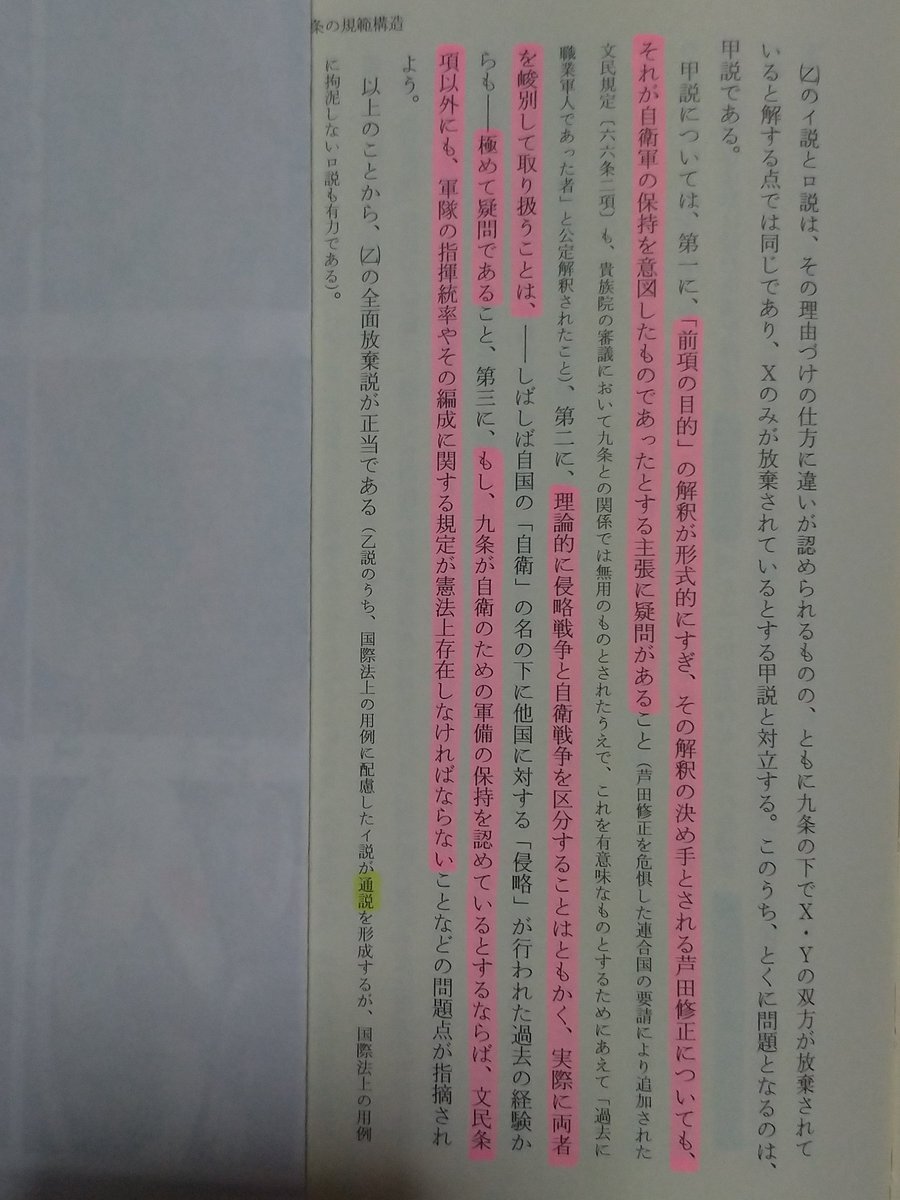 条の規範構造
㈡のイ説とロ説は、その理由づけの仕方に違いが認められるものの、ともに九条の下でX・Yの双方が放棄されて
いると解する点では同じであり、Xのみが放棄されているとする甲説と対立する。このうち、とくに問題となるのは、
甲説である。
甲説については、第一に、「前項の目的」の解釈が形式的にすぎ、その解釈の決め手とされる芦田修正についても、
それが自衛軍の保持を意図したものであったとする主張に疑問があること（芦田修正を危惧した連合国の要請により追加された
文民規定〔六六条二項〕も、貴族院の審議において九条との関係では無用のものとされたうえで、これを有意味なものとするためにあえて「過去に
職業軍人であった者」と公定解釈されたこと）、第二に、理論的に侵略戦争と自衛戦争を区分することはともかく、実際に両者
を峻別して取り扱うことは、――しばしば自国の「自衛」の名の下に他国に対する「侵略」が行われた過去の経験か
らも――極めて疑問であること、第三に、もし、九条が自衛のための軍備の保持を認めているとするならば、文民条
項以外にも、軍隊の指揮統率やその編成に関する規定が憲法上存在しなければならないことなどの問題点が指摘され
よう。
以上のことから、乙の全面放棄説が正当である（乙説のうち、国際法上の用例に配慮したイ説が通説を形成するが、国際法上の用例
に拘泥しないロ説も有力である）。